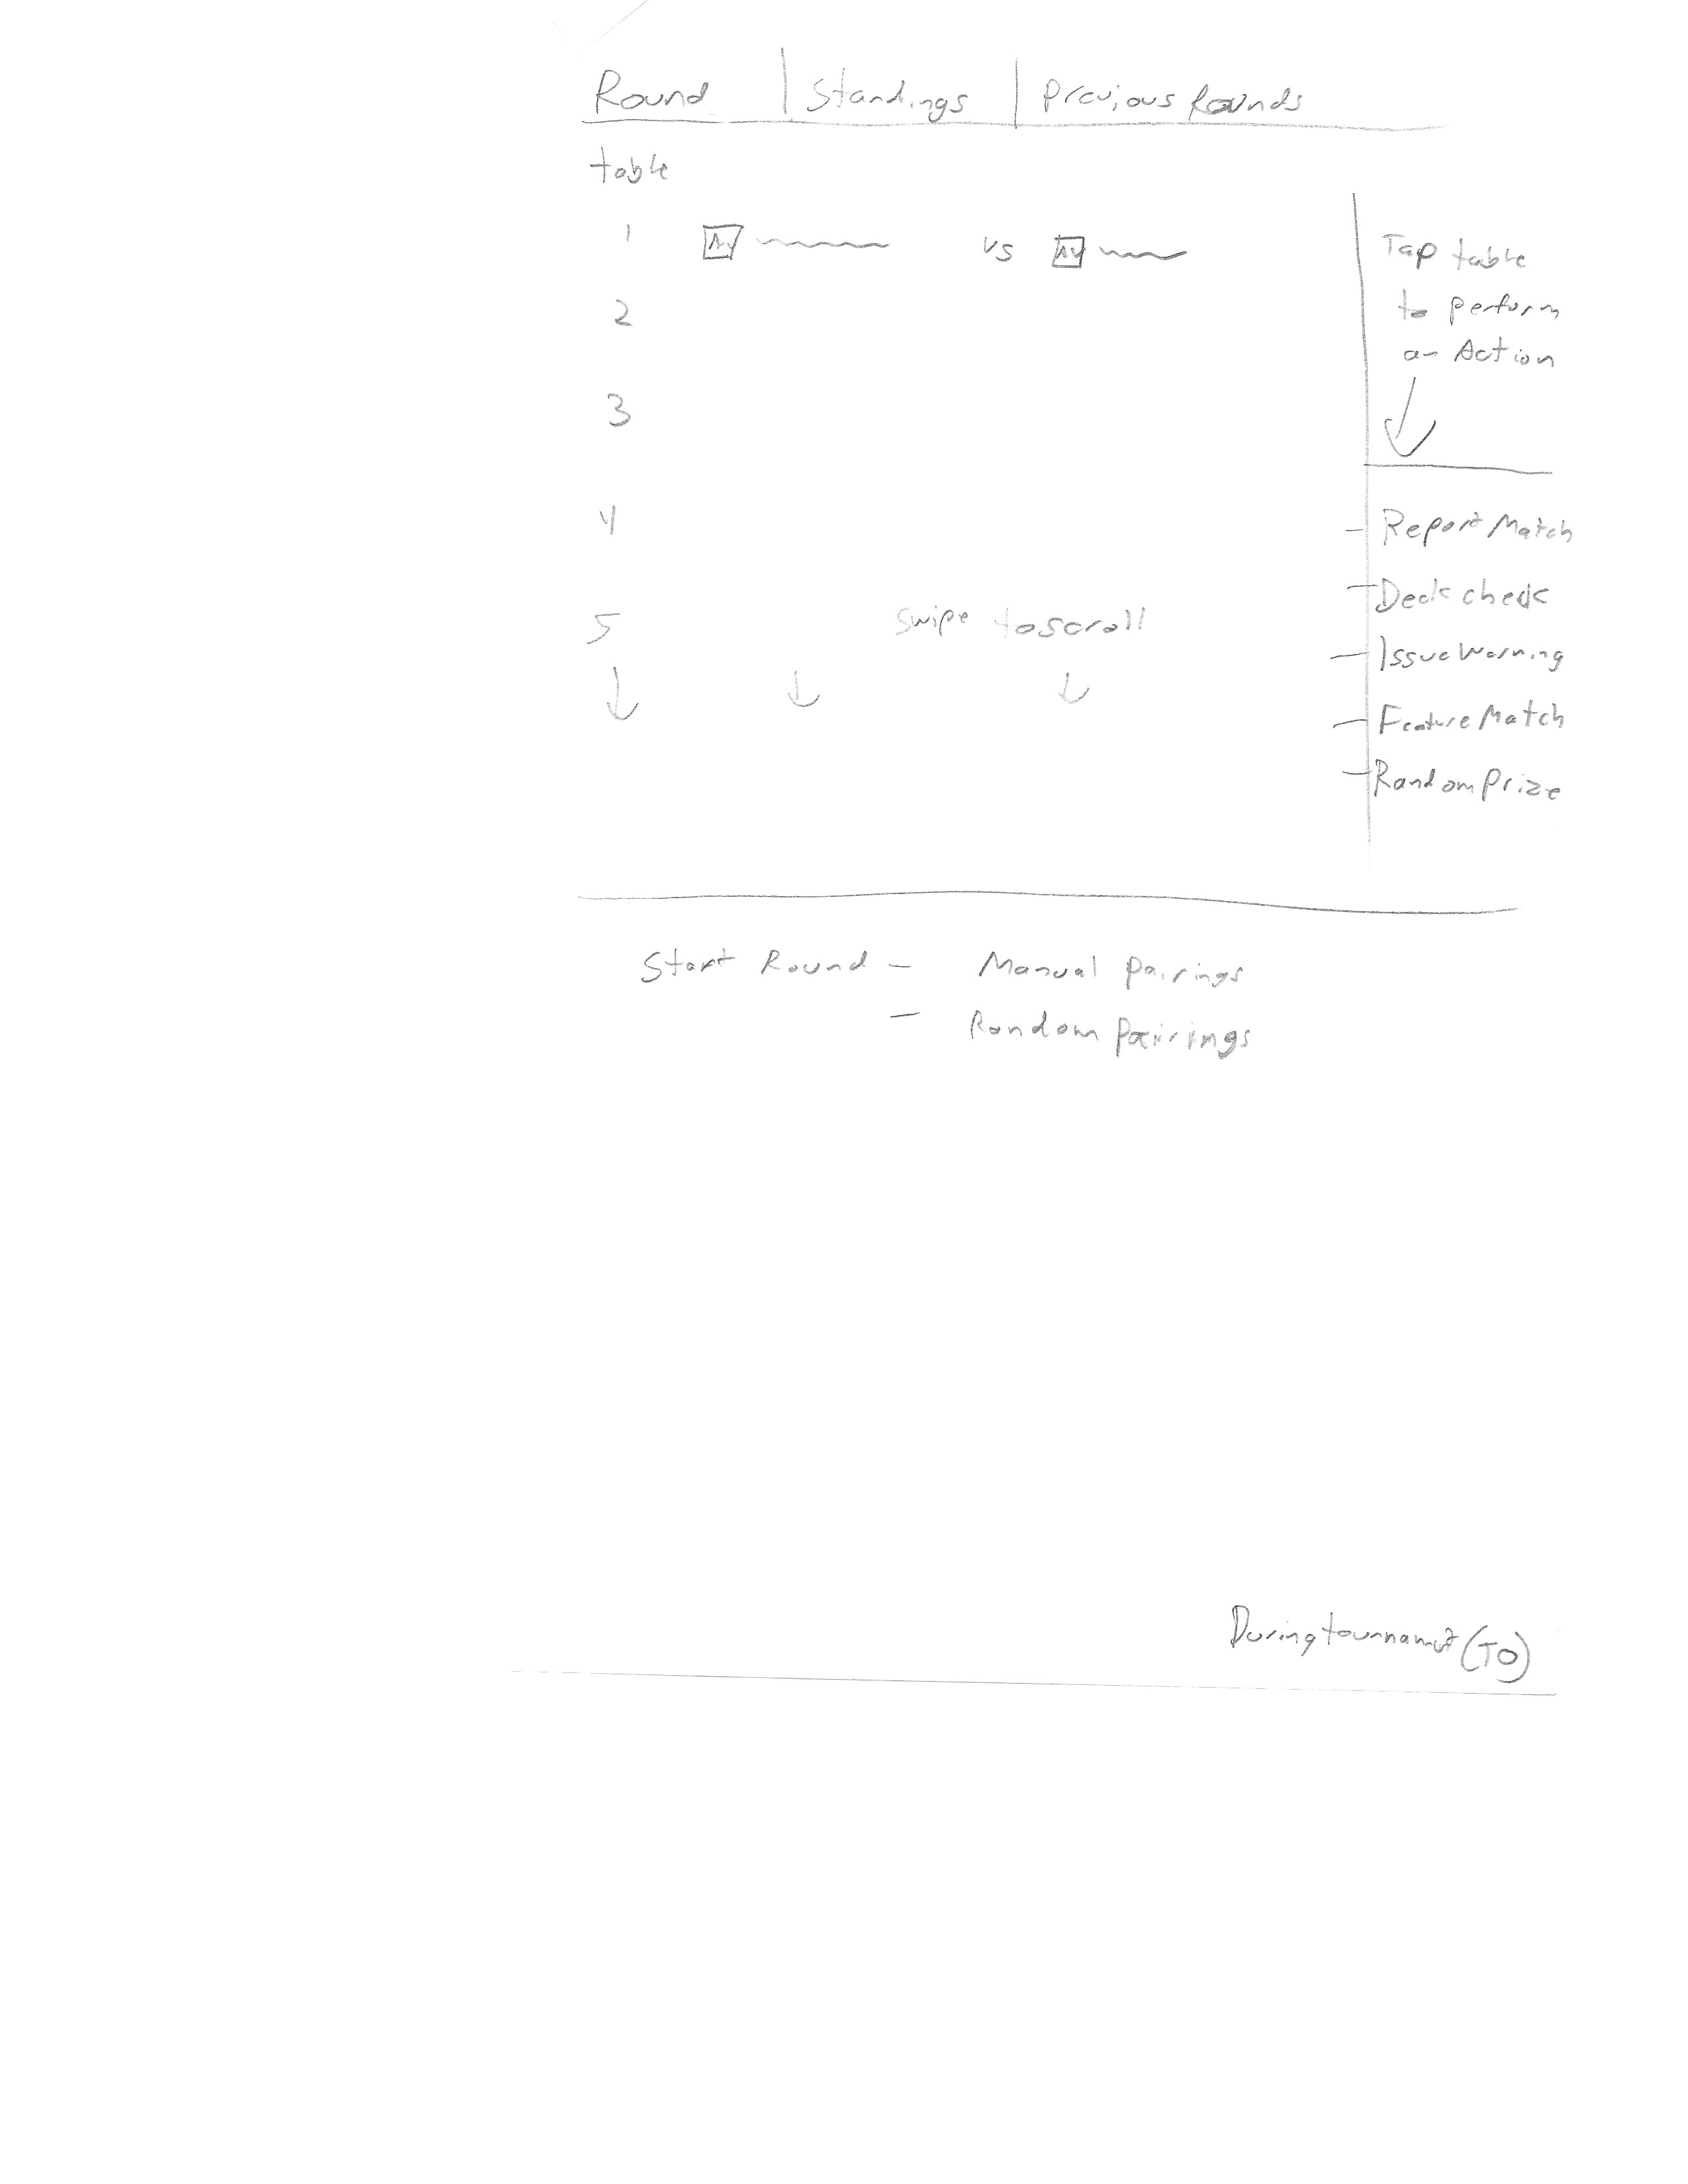 Round | Standings | Previous Rounds
table
1 Av vs Av
2
3
4
5 swipe to scroll
Tap table
to perform
an Action
- Report Match
- Deck check
- Issue Warning
- Feature Match
- Random Prize
Start Round - Manual pairings
- Random pairings
During tournament (TO)